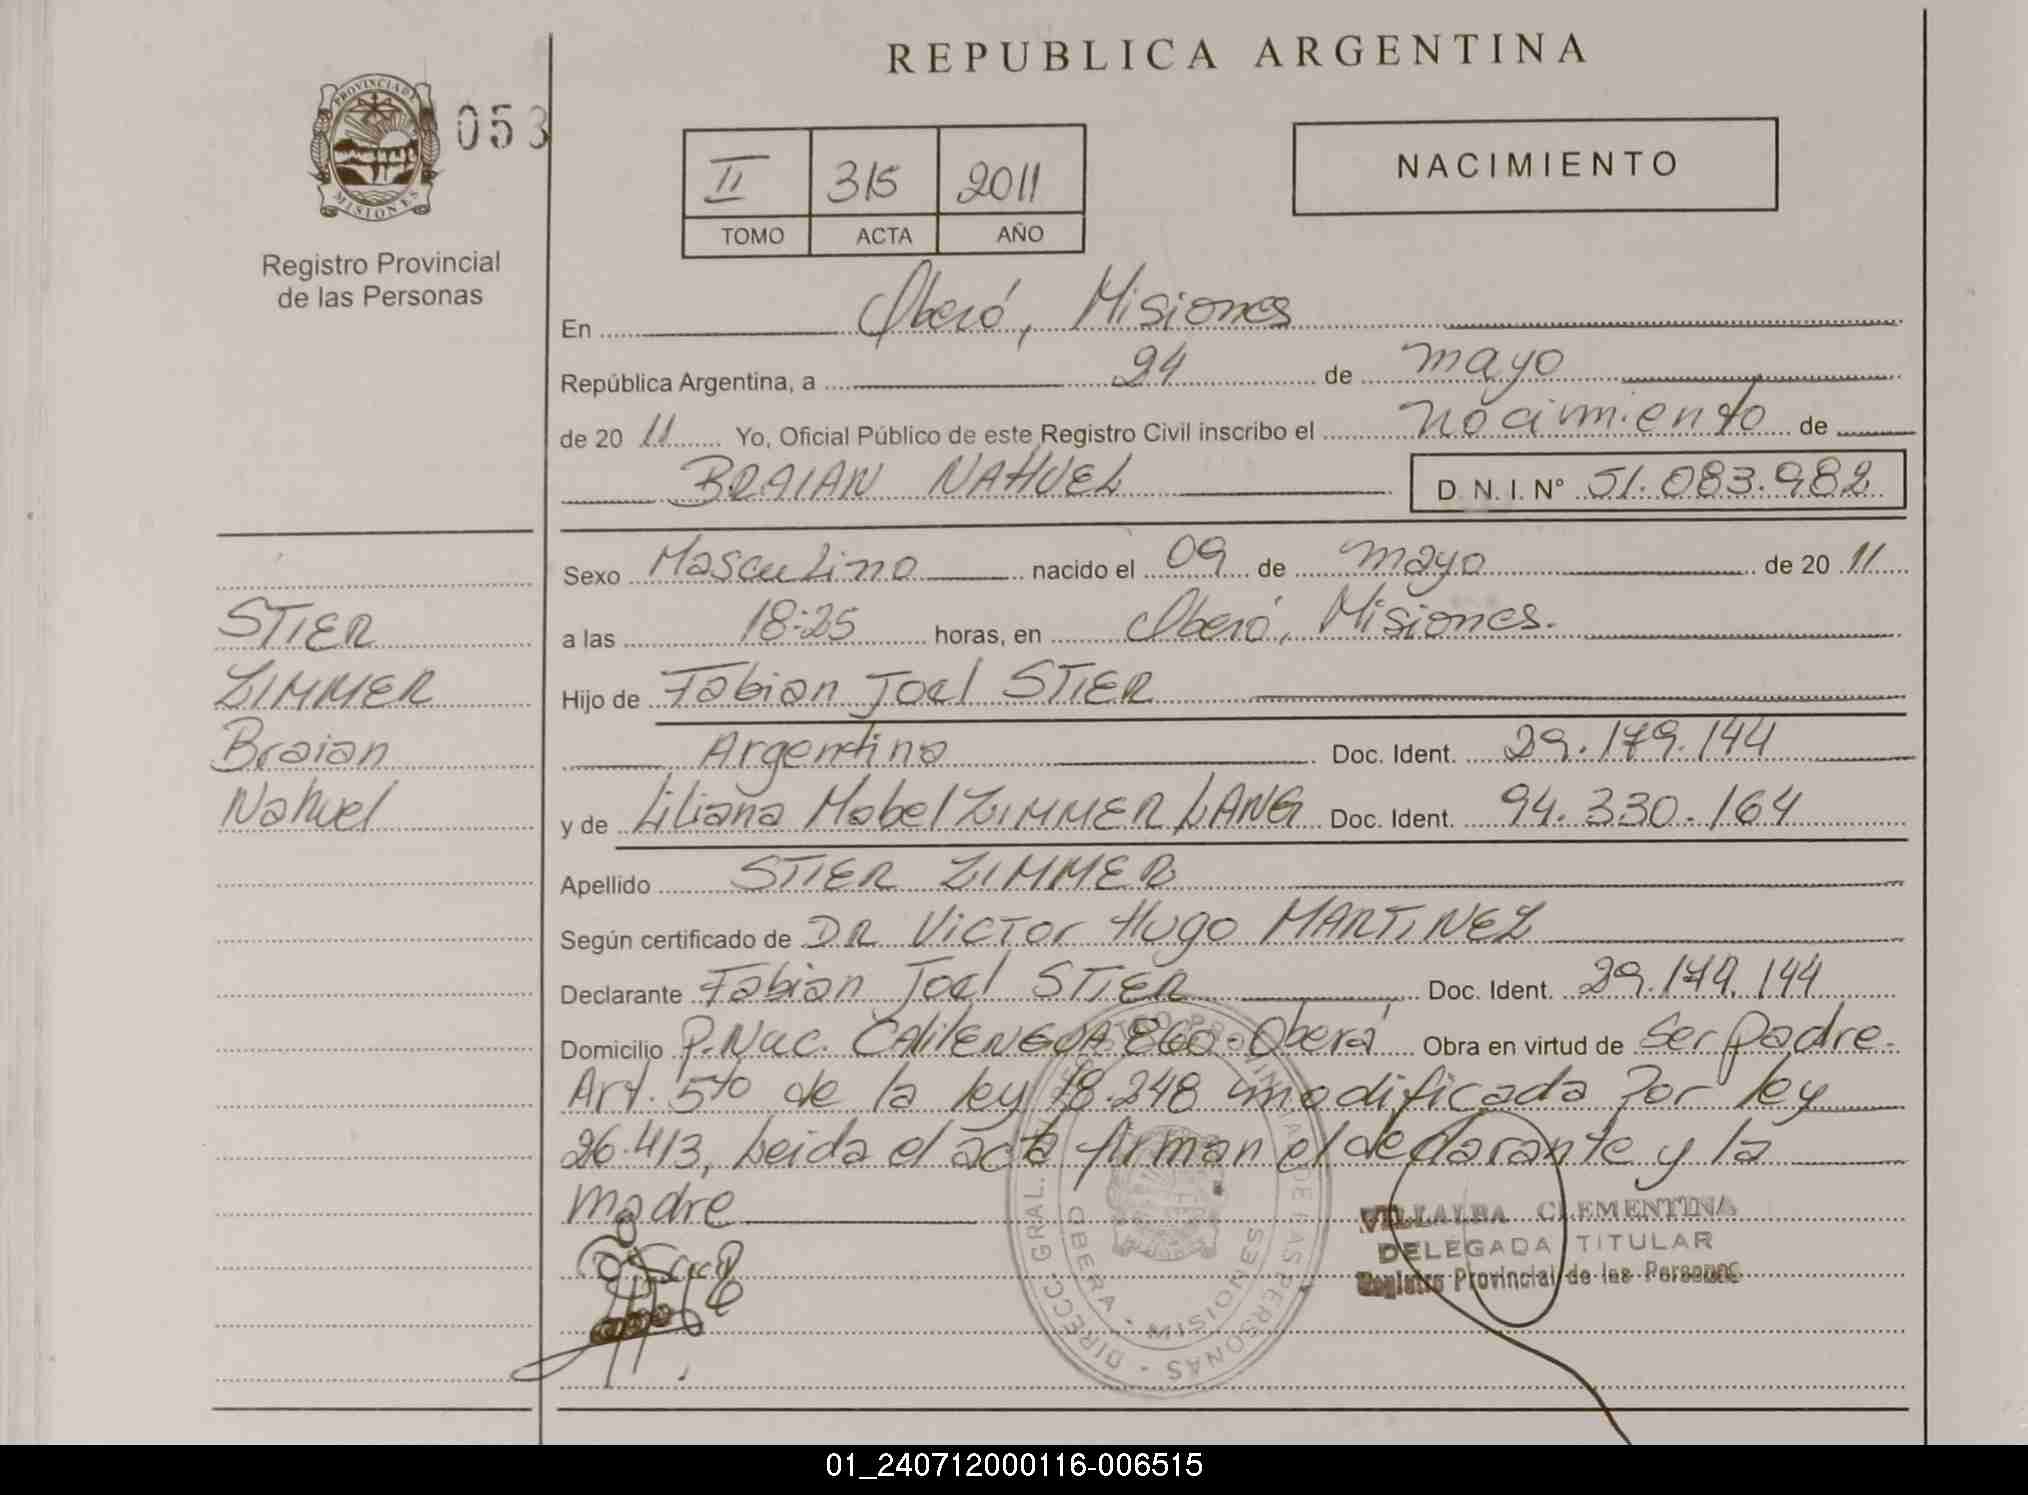 REPUBLICA ARGENTINA
PROVINCIA DE
MISIONES
053
Registro Provincial
de las Personas
II 315 2011
TOMO ACTA AÑO
NACIMIENTO
En Oberá, Misiones
República Argentina, a 24 de mayo
de 2011 Yo, Oficial Público de este Registro Civil inscribo el nacimiento de
BRAIAN NAHUEL D.N.I. N° 51.083.982
STIER
ZIMMER
Braian
Nahuel
Sexo Masculino nacido el 09 de mayo de 2011
a las 18:25 horas, en Oberá, Misiones.
Hijo de Fabian Joel STIER
Argentino Doc. Ident. 29.179.144
y de Liliana Mabel ZIMMER LANG Doc. Ident. 94.330.164
Apellido STIER ZIMMER
Según certificado de DR Victor Hugo MARTINEZ
Declarante Fabian Joel STIER Doc. Ident. 29.179.144
Domicilio P. Nac. CALILEGUA 860 - Oberá Obra en virtud de Ser padre.
Art. 5to de la ley 18.248 modificada por ley
26.413, Leida el acta firman el declarante y la
madre
DIRECC. GRAL. REGISTRO PROVINCIAL DE LAS PERSONAS
OBERA - MISIONES
VILLALBA CLEMENTINA
DELEGADA TITULAR
Registro Provincial de las Personas
01_240712000116-006515